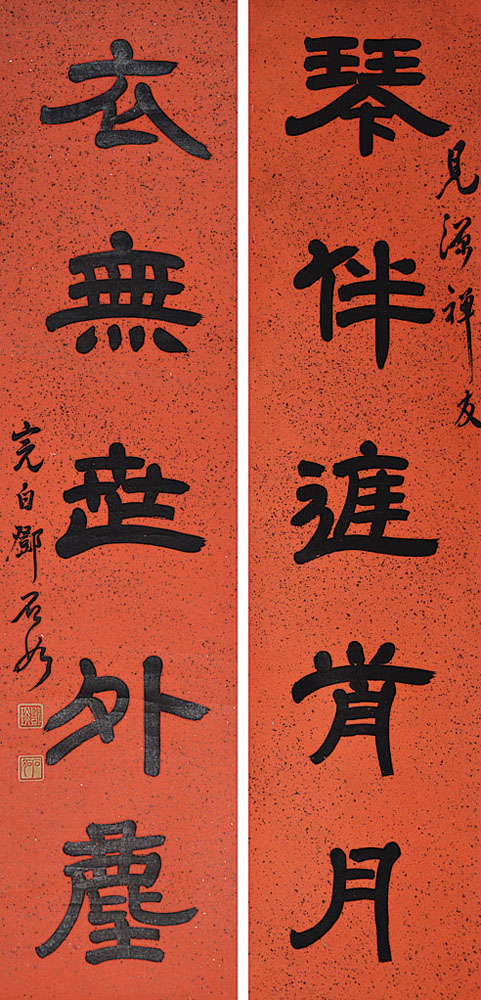 見源禪友
琴伴庭前月
衣無世外塵
完白鄧石如